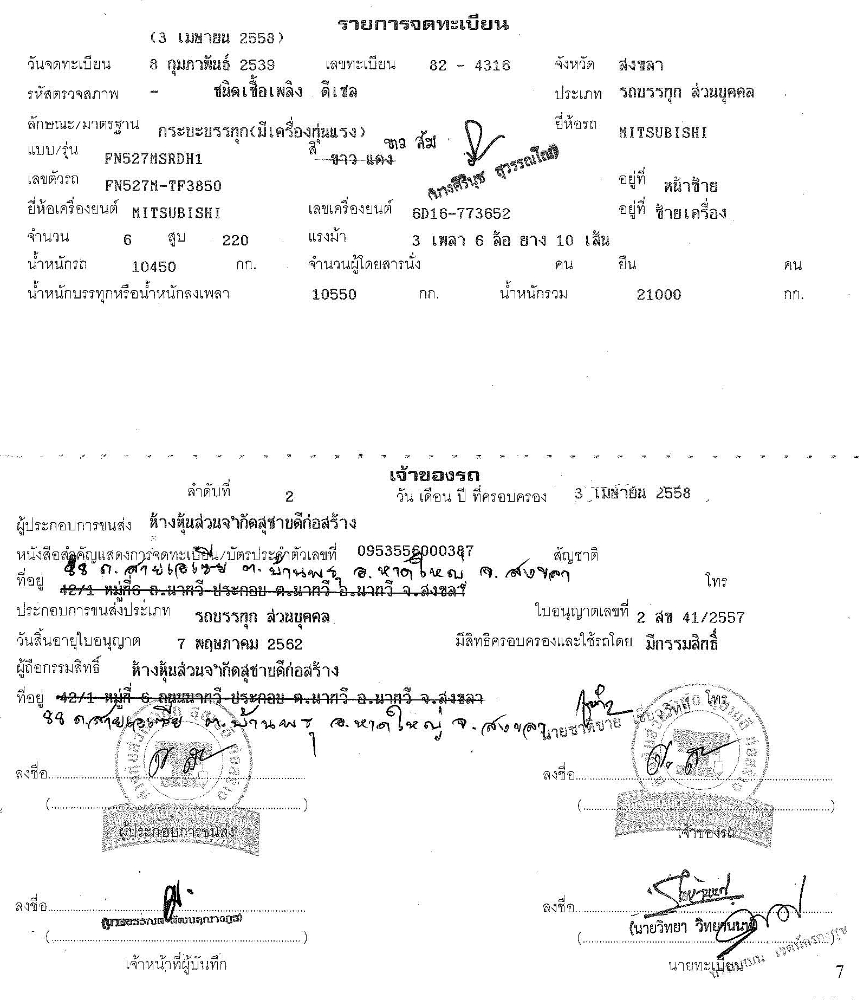 รายการจดทะเบียน
(3 เมษายน 2558)
วันจดทะเบียน 8 กุมภาพันธ์ 2539 เลขทะเบียน 82 - 4316 จังหวัด สงขลา
รหัสตรวจสภาพ - ชนิดเชื้อเพลิง ดีเซล ประเภท รถบรรทุก ส่วนบุคคล
ลักษณะ/มาตรฐาน กระบะบรรทุก(มีเครื่องทุ่นแรง) สี ขาว แดง ขาว ส้ม ยี่ห้อรถ MITSUBISHI
แบบ/รุ่น FN527MSRDH1
(นางศิรินุช สุวรรณโณ)
เลขตัวรถ FN527M-TF3850 อยู่ที่ หน้าซ้าย
ยี่ห้อเครื่องยนต์ MITSUBISHI เลขเครื่องยนต์ 6D16-773652 อยู่ที่ ซ้ายเครื่อง
จำนวน 6 สูบ 220 แรงม้า 3 เพลา 6 ล้อ ยาง 10 เส้น
น้ำหนักรถ 10450 กก. จำนวนผู้โดยสารนั่ง คน ยืน คน
น้ำหนักบรรทุกหรือน้ำหนักลงเพลา 10550 กก. น้ำหนักรวม 21000 กก.
เจ้าของรถ
ลำดับที่ 2 วัน เดือน ปี ที่ครอบครอง 3 เมษายน 2558
ผู้ประกอบการขนส่ง ห้างหุ้นส่วนจำกัดสุชายดีก่อสร้าง
หนังสือสำคัญแสดงการจดทะเบียน/บัตรประจำตัวเลขที่ 0953556000387 สัญชาติ
88 ถ.สายเอเซีย ต.บ้านพรุ อ.หาดใหญ่ จ.สงขลา
ที่อยู่ 42/1 หมู่ที่6 ถ.นาทวี-ประกอบ ต.นาทวี อ.นาทวี จ.สงขลา โทร
ประกอบการขนส่งประเภท รถบรรทุก ส่วนบุคคล ใบอนุญาตเลขที่ 2 สข 41/2557
วันสิ้นอายุใบอนุญาต 7 พฤษภาคม 2562 มีสิทธิครอบครองและใช้รถโดย มีกรรมสิทธิ์
ผู้ถือกรรมสิทธิ์ ห้างหุ้นส่วนจำกัดสุชายดีก่อสร้าง
ที่อยู่ 42/1 หมู่ที่ 6 ถนนนาทวี-ประกอบ ต.นาทวี อ.นาทวี จ.สงขลา โทร
88 ถ.สายเอเซีย ต.บ้านพรุ อ.หาดใหญ่ จ.สงขลา
ลงชื่อ ลงชื่อ
( ) ( )
ผู้ประกอบการขนส่ง เจ้าของรถ
ลงชื่อ ลงชื่อ
(นายวิทยา วิทยานนท์)
( ) ( )
เจ้าหน้าที่ผู้บันทึก นายทะเบียน
7